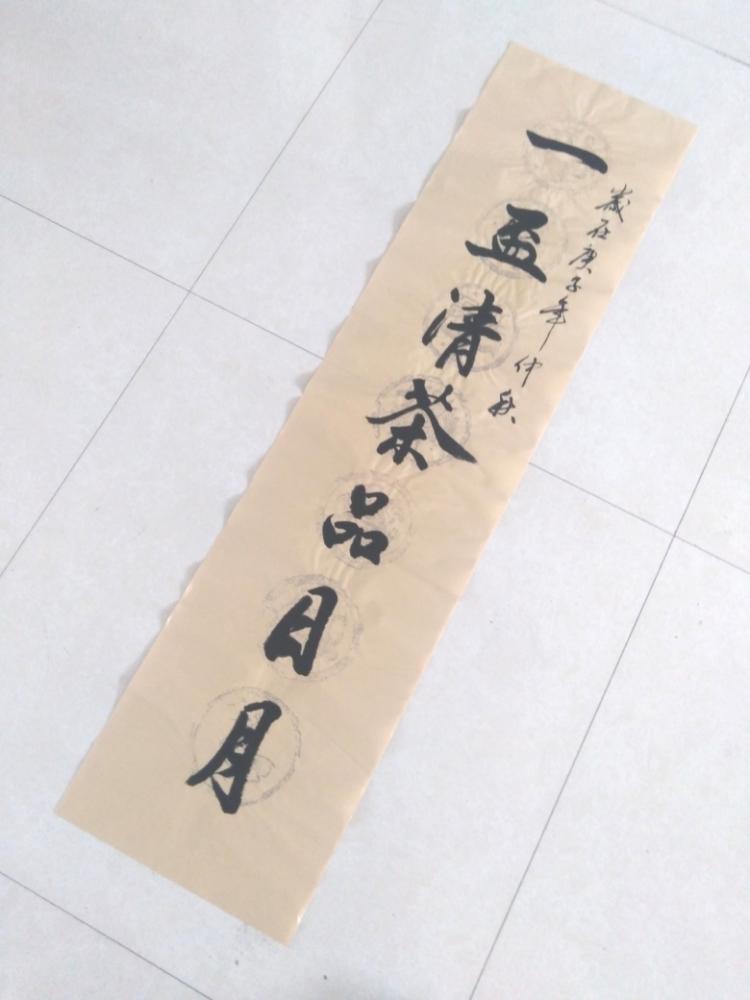 歲在庚子年仲秋
一盃清茶品日月